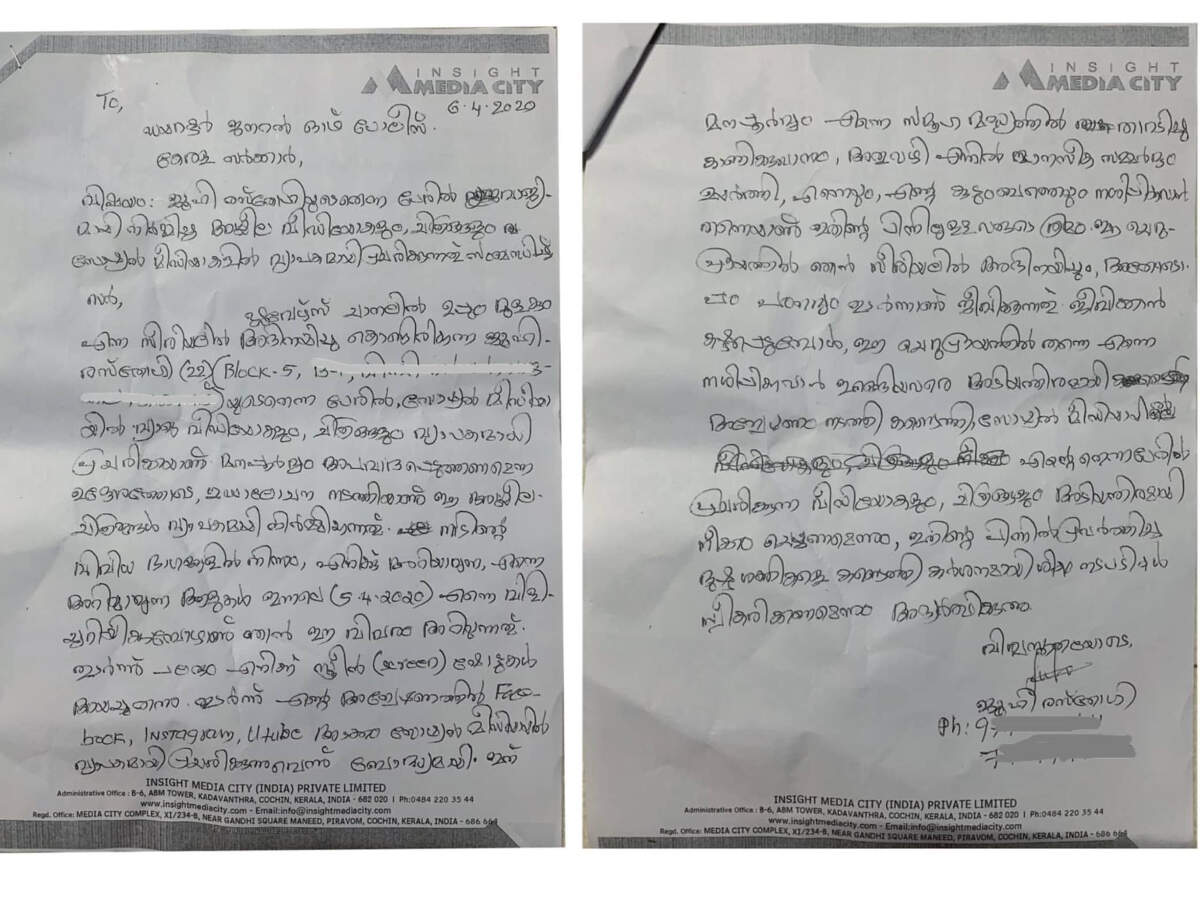 INSIGHT
MEDIA CITY
To,
6.4.2020
ഡയറക്ടർ ജനറൽ ഓഫ് പോലീസ്.
കേരള സർക്കാർ,
വിഷയം: ജൂഹി രസ്തോഗിയുടേതെന്ന പേരിൽ വ്യാജ-
മായി നിർമ്മിച്ച അശ്ലീല വീഡിയോകളും, ചിത്രങ്ങളും
സോഷ്യൽ മീഡിയകളിൽ വ്യാപകമായി പ്രചരിക്കുന്നത് സംബന്ധിച്ച്
സർ,
ഫ്ലവേഴ്സ് ചാനലിൽ ഉപ്പും മുളകും
എന്ന സീരിയലിൽ അഭിനയിച്ചു കൊണ്ടിരിക്കുന്ന ജൂഹി-
രസ്തോഗി (22) (Block-5,
യുടെതെന്ന പേരിൽ, സോഷ്യൽ മീഡിയ
യിൽ വ്യാജ വീഡിയോകളും, ചിത്രങ്ങളും വ്യാപകമായി
പ്രചരിക്കയാണ്. മനപ്പൂർവ്വം അപവാദപ്പെടുത്തണമെന്ന
ഉദ്ദേശത്തോടെ, ഗൂഢാലോചന നടത്തിയാണ് ഈ അശ്ലീല-
ചിത്രങ്ങൾ വ്യാപകമായി നിർമ്മിയ്ക്കുന്നത്. നാടിന്റെ
വിവിധ ഭാഗങ്ങളിൽ നിന്നും, എനിക്ക് അറിയാവുന്ന, എന്നെ
അറിയാവുന്ന ആളുകൾ ഇന്നലെ (5.4.2020) എന്നെ വിളി-
ച്ചറിയിക്കുമ്പോഴാണ് ഞാൻ ഈ വിവരം അറിയുന്നത്.
തുടർന്ന് പലരും എനിക്ക് സ്ക്രീൻ (screen) ഷോട്ടുകൾ
അയച്ചുതന്നു. തുടർന്ന് എന്റെ അന്വേഷണത്തിൽ Face-
book, Instagram, Utube അടക്കം സോഷ്യൽ മീഡിയയിൽ
വ്യാപകമായി പ്രചരിക്കുന്നുവെന്ന് ബോദ്ധ്യമായി. ഇത്
INSIGHT MEDIA CITY (INDIA) PRIVATE LIMITED
Administrative Office : B-6, ABM TOWER, KADAVANTHRA, COCHIN, KERALA, INDIA - 682 020 I Ph:0484 220 35 44
www.insightmediacity.com - Email:info@insightmediacity.com
Regd. Office: MEDIA CITY COMPLEX, XI/234-B, NEAR GANDHI SQUARE MANEED, PIRAVOM, COCHIN, KERALA, INDIA - 686 664
INSIGHT
MEDIA CITY
മനപ്പൂർവ്വം എന്നെ സമൂഹ മദ്ധ്യത്തിൽ താറടിച്ചു
കാണിക്കുവാനും, അതുവഴി എന്നിൽ മാനസീക സമ്മർദ്ദം
ചെലുത്തി, എന്നെയും, എന്റെ കുടുംബത്തെയും നശിപ്പിക്കുവാൻ
തന്നെയാണ് ഇതിന്റെ പിന്നിലുള്ളവരുടെ ശ്രമം. ഈ ചെറു-
പ്രായത്തിൽ ഞാൻ സീരിയലിൽ അഭിനയിച്ചും, അതോടൊ-
പ്പം പഠനവും തുടർന്നാണ് ജീവിക്കുന്നത്. ജീവിക്കാൻ
കഷ്ടപ്പെടുമ്പോൾ, ഈ ചെറുപ്രായത്തിൽ തന്നെ എന്നെ
നശിപ്പിക്കുവാൻ ഇറങ്ങിയവരെ അടിയന്തിരമായി
അന്വേഷണം നടത്തി കണ്ടെത്തി, സോഷ്യൽ മീഡിയായിലൂടെ
എന്റെതെന്നപേരിൽ
പ്രചരിക്കുന്ന വീഡിയോകളും, ചിത്രങ്ങളും അടിയന്തിരമായി
നീക്കം ചെയ്യണമെന്നും, ഇതിന്റെ പിന്നിൽ പ്രവർത്തിച്ച
ദുഷ്ടശക്തികളെ കണ്ടെത്തി കർശനമായ ശിക്ഷ നടപടികൾ
സ്വീകരിക്കണമെന്നും അഭ്യർത്ഥിക്കുന്നു.
വിശ്വസ്തതയോടെ,
ജൂഹി രസ്തോഗി
Ph: 9
7
INSIGHT MEDIA CITY (INDIA) PRIVATE LIMITED
Administrative Office : B-6, ABM TOWER, KADAVANTHRA, COCHIN, KERALA, INDIA - 682 020 I Ph:0484 220 35 44
www.insightmediacity.com - Email:info@insightmediacity.com
Regd. Office: MEDIA CITY COMPLEX, XI/234-B, NEAR GANDHI SQUARE MANEED, PIRAVOM, COCHIN, KERALA, INDIA - 686 664